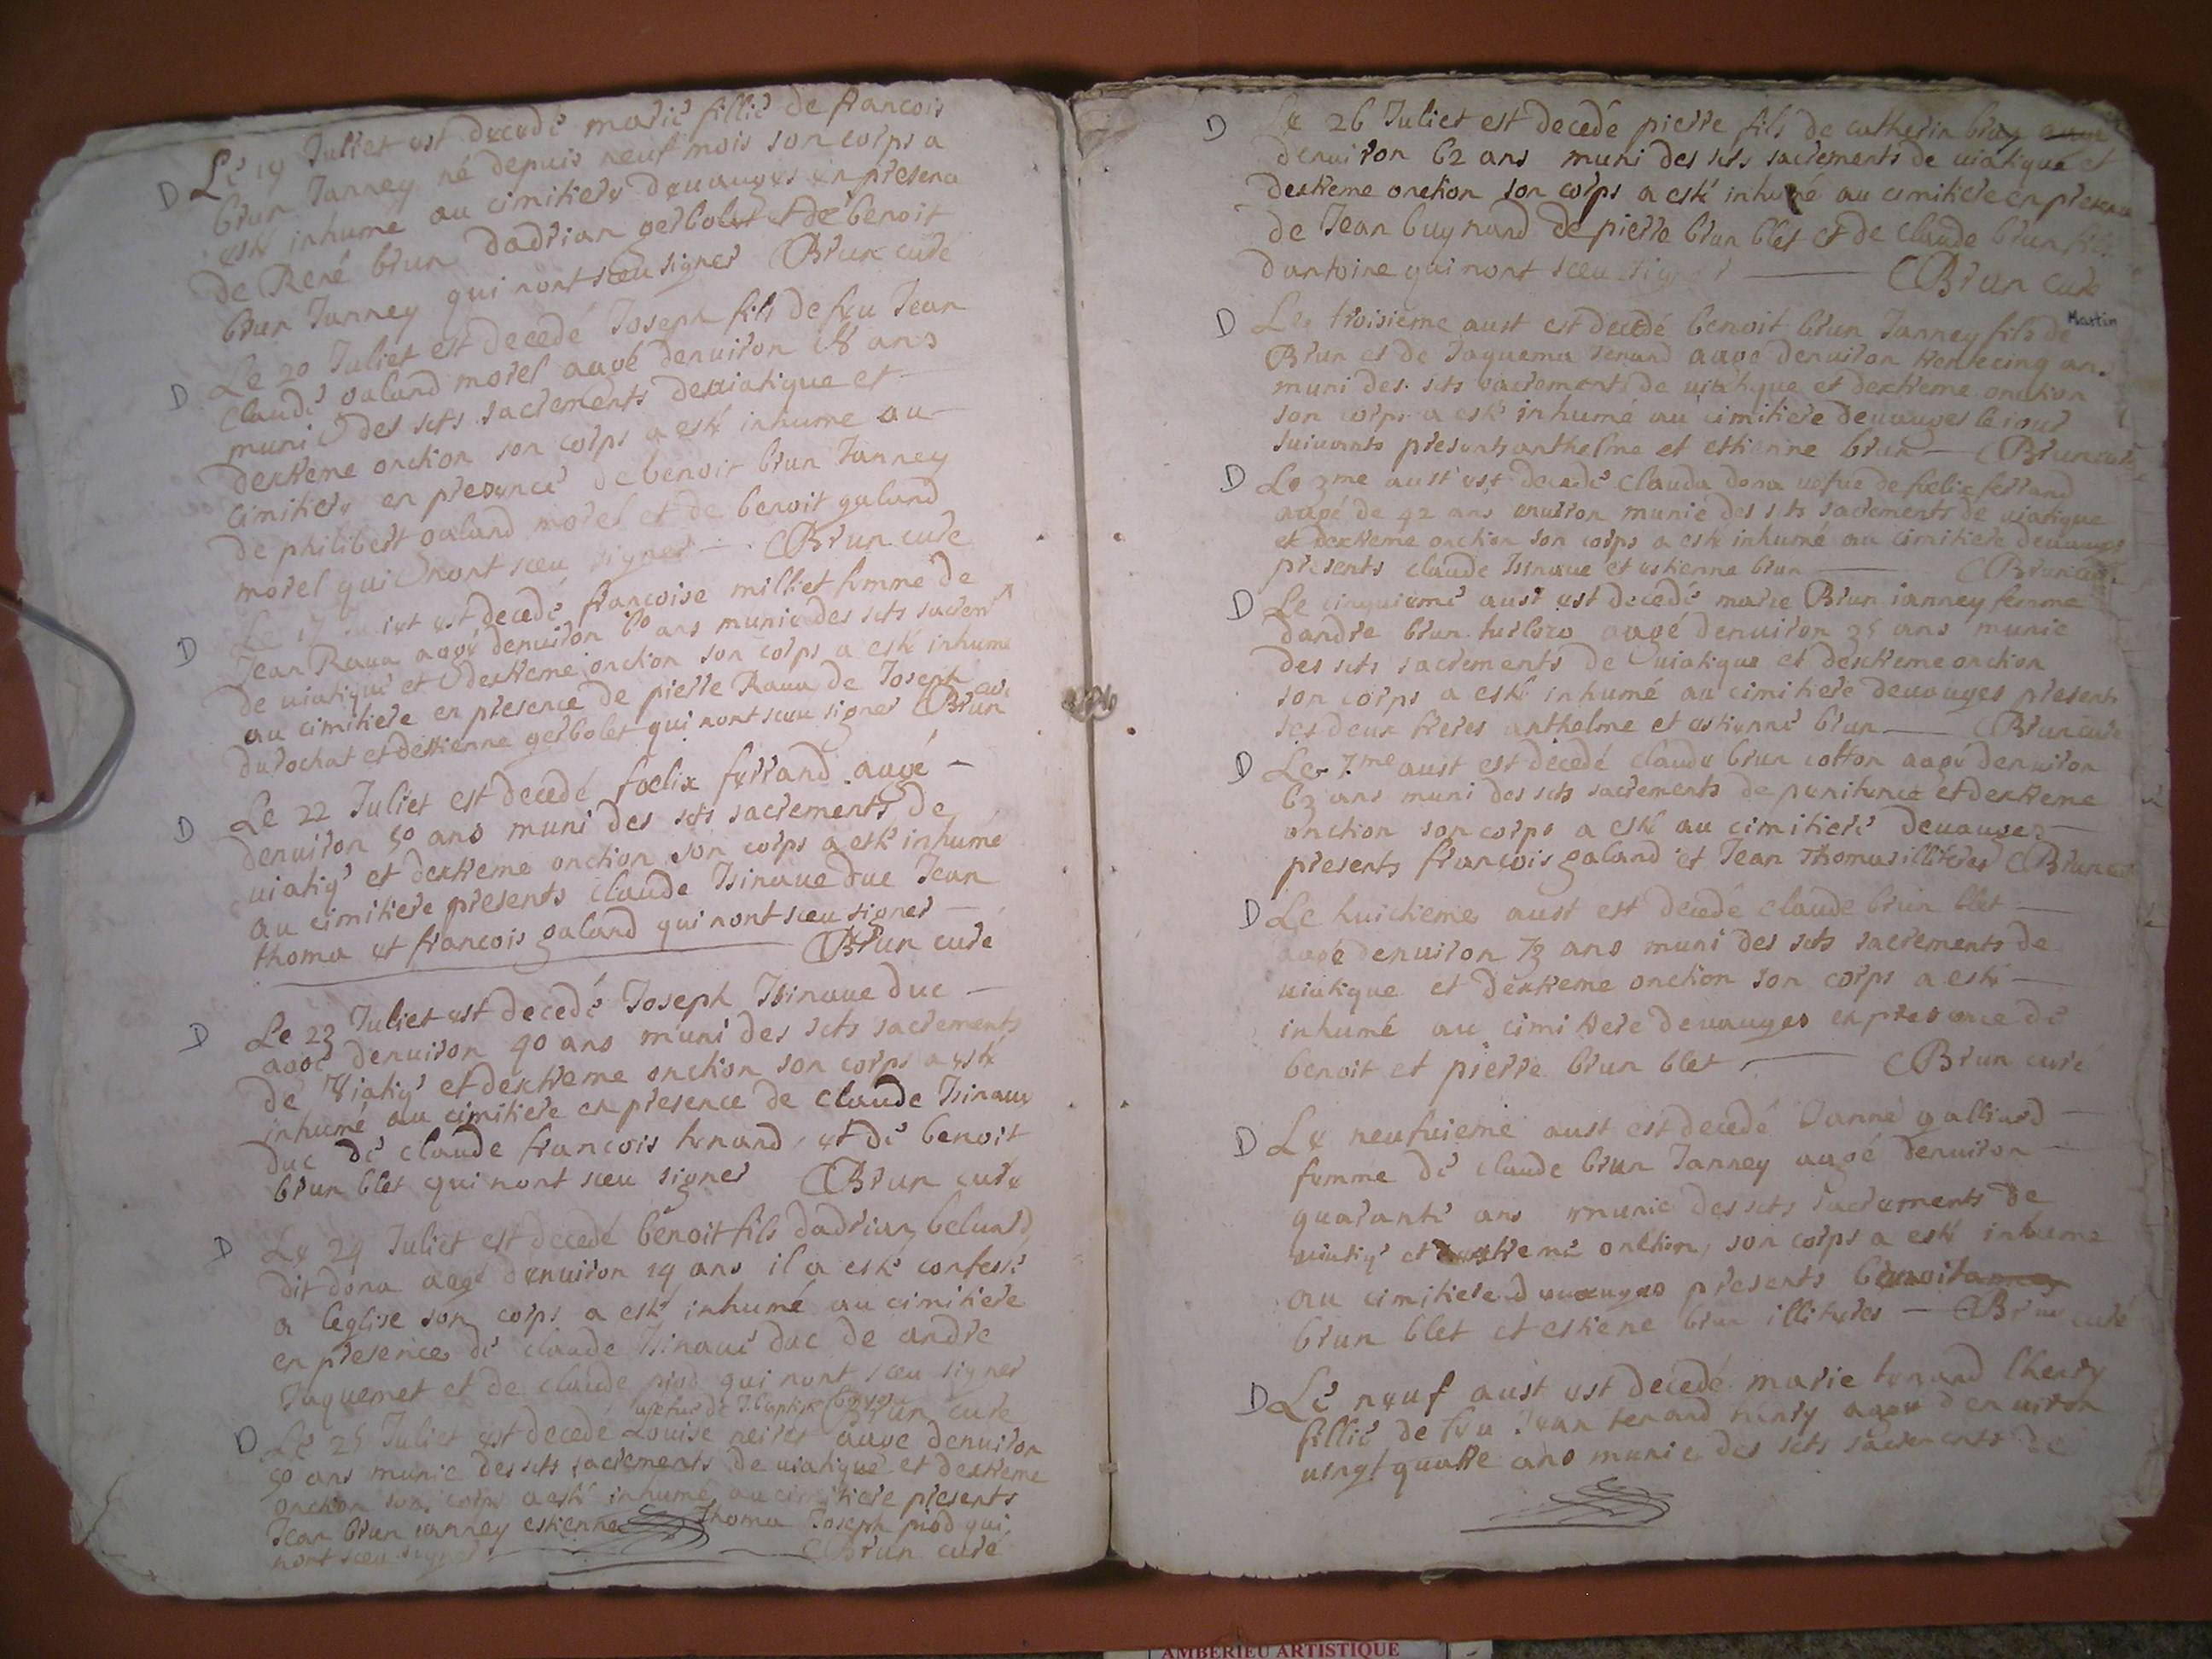 D Le 19 Juliet est decedé marie fillie de francois
brun Janney né depuis neuf mois son corps a
esté inhumé au cimitiere devauges en presence
de René brun dadrian gerbolet et de benoit
brun Janney qui nont sceu signer Brun curé
D Le 20 Juliet est decedé Joseph fils de feu Jean
Claude galand morel aagé denviron ans
muni des sts sacrements de viatique et
dextreme onction son corps a esté inhume au
cimitiere en presence de benoit brun Janney
de philibert galand morel et de benoit galand
morel qui nont sceu signer Brun curé
D Le est decedé francoise milliet femme de
Jean Rava aagé denviron 60 ans munie des sts sacremt
de viatique et dextreme onction son corps a esté inhumé
au cimitiere en presence de pierre Rava de Joseph
durochat et destienne gerbolet qui nont sceu signer Brun curé
D Le 22 Juliet est decedé foelix ferrand aagé
denviron 50 ans muni des sts sacrements de
viatiq' et dextreme onction son corps a esté inhumé
au cimitiere presents claude Isinave duc Jean
thoma et francois galand qui nont sceu signer
Brun curé
D Le 23 Juliet est decedé Joseph Isinave duc
aagé denviron 40 ans muni des sts sacrements
de viatiq' et dextreme onction son corps a esté
inhumé au cimitiere en presence de claude Isinave
duc de claude francois tenand et de benoit
brun blet qui nont sceu signer Brun curé
D Le 24 Juliet est decedé benoit fils dadrian beluard
dit dona aagé denviron 14 ans il a esté confessé
a leglise son corps a esté inhumé au cimitiere
en presence de claude Isinave duc de andre
Jaquemet et de claude piod qui nont sceu signer
vefve de J. baptiste Brun curé
D Le 25 Juliet est decedé Louise neiret aagé denviron
50 ans munie des sts sacrements de viatique et dextreme
onction son corps a esté inhumé au cimitiere presents
Jean brun janney estienne thoma Joseph piod qui
nont sceu signer Brun curé
D Le 26 Juliet est decedé pierre fils de catherin bruy
denviron 62 ans muni des sts sacrements de viatique et
dextreme onction son corps a esté inhumé au cimitiere en presence
de Jean buynand de pierre brun blet et de claude brun fils
dantoine qui nont sceu signer Brun curé
D Le troisieme aust est decedé benoit brun Janney fils de Martin
Brun et de Jaquema tenand aagé denviron trentecinq an.
muni des sts sacrements de viatique et dextreme onction
son corps a esté inhumé au cimitiere devauges le jour
suivants presents anthelme et estienne brun Brun curé
D Le 3me aust est decedé clauda dona vefve de foelix ferrand
aagé de 42 ans environ munie des sts sacrements de viatique
et dextreme onction son corps a esté inhumé au cimitiere devauges
presents claude Isinave et estienne brun Brun curé
D Le cinquieme aust est decedé marie Brun janney femme
dandre brun aagé denviron 35 ans munie
des sts sacrements de viatique et dextreme onction
son corps a esté inhumé au cimitiere devauges presents
ses deux freres anthelme et estienne brun Brun curé
D Le 7me aust est decedé claude brun cotton aagé denviron
63 ans muni des sts sacrements de penitence et dextreme
onction son corps a esté au cimitiere devauges
presents francois galand et Jean Thomas illiteres Brun curé
D Le huictieme aust est decedé claude brun blet
aagé denviron 73 ans muni des sts sacrements de
viatique et dextreme onction son corps a esté
inhumé au cimitiere devauges en presence de
benoit et pierre brun blet Brun curé
D Le neufvieme aust est decedé Janne galliard
femme de claude brun Janney aagé denviron
quarante ans munie des sts sacrements de
viatiq' et dextreme onction, son corps a esté inhume
au cimitiere devauges presents benoit
brun blet et estiene brun illiteres Brun curé
D Le neuf aust est decedé marie tenand lhenry
fillie de feu Jean tenand henry aagée denviron
vingt quatre ans munie des sts sacrements de
AMBERIEU ARTISTIQUE